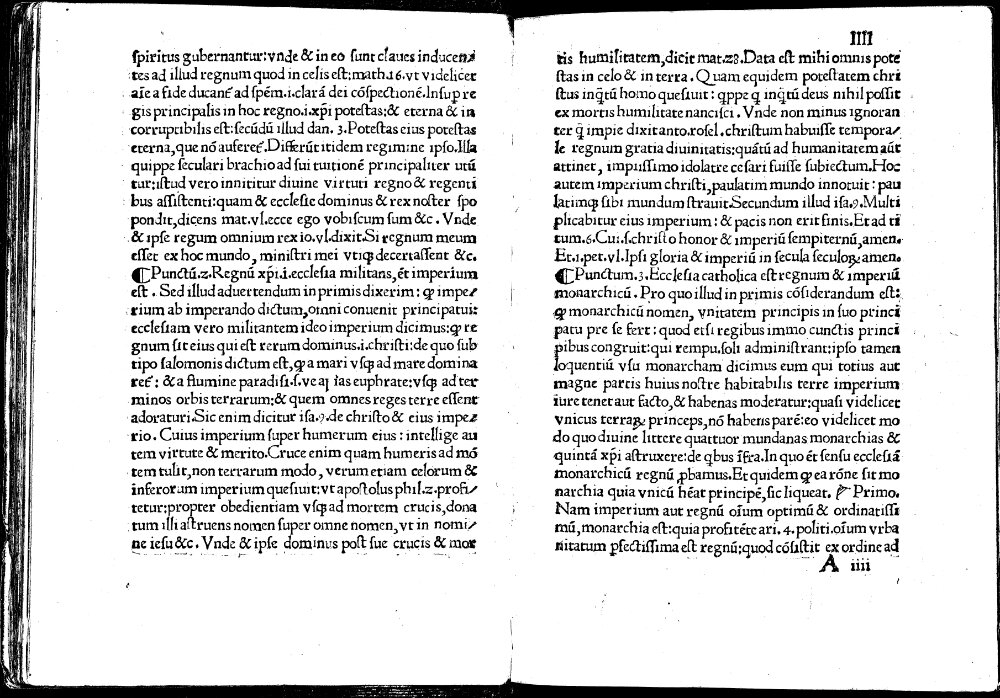 spiritus gubernantur:vnde & in eo sunt claues inducen⸗
tes ad illud regnum quod in celis est;math.16.vt videlicet
aīe a fide ducanẽ ad spēm.i.clarā dei cōspectionē.Insup re
gis principalis in hoc regno.i.xp̄i potestas:& eterna & in
corruptibilis est:secūdū illud dan. 3.Potestas eius potestas
eterna,que nō auferet̃.Differūt itidem regimine ipso.Illa
quippe seculari brachio ad sui tuitionē principaliter utū
tur:istud vero innititur diuine virtuti regno & regenti
bus assistenti:quam & ecclesie dominus & rex noster spo
pondit,dicens mat.vl.ecce ego vobiscum sum &c. Vnde
& ipse regum omnium rex io.vl.dixit.Si regnum meum
esset ex hoc mundo, ministri mei vtiqꝫ decertassent &c.
¶Punctū.2.Regnū xp̄i.i.ecclesia militans,ēt imperium
est. Sed illud aduertendum in primis dixerim: ꝙ impe⸗
rium ab imperando dictum,omni conuenit principatui:
ecclesiam vero militantem ideo imperium dicimus:ꝙ re
gnum sit eius qui est rerum dominus.i.christi:de quo sub
tipo salomonis dictum est,ꝙ a mari vsqꝫ ad mare domina
ret̃: & a flumine paradisi.s.ve as euphrate:vsqꝫ ad ter
minos orbis terrarum:& quem omnes reges terre essent
adoraturi.Sic enim dicitur isa.9.de christo & eius impe⸗
rio. Cuius imperium super humerum eius: intellige au
tem virtute & merito.Cruce enim quam humeris ad mō
tem tulit,non terrarum modo, verum etiam celorum &
inferorum imperium quesiuit:vt apostolus phil.2.profi⸗
tetur:propter obedientiam vsqꝫ ad mortem crucis,dona
tum illi astruens nomen super omne nomen,vt in nomi⸗
ne iesu &c. Vnde & ipse dominus post sue crucis & mor
IIII
tis humilitatem,dicit mat.28.Data est mihi omnis pote
stas in celo & in terra. Quam equidem potestatem chri
stus inq̄tū homo quesiuit: qppe q inq̄tū deus nihil possit
ex mortis humilitate nancisci. Vnde non minus ignoran
ter q̄ impie dixit anto.rosel.christum habuisse tempora⸗
le regnum gratia diuinitatis:quātū ad humanitatem aūt
attinet, impiissimo idolatre cesari fuisse subiectum.Hoc
autem imperium christi,paulatim mundo innotuit: pau
latimqꝫ sibi mundum strauit.Secundum illud isa.9.Multi
plicabitur eius imperium: & pacis non erit finis.Et ad ti
tum.6.Cui.s.christo honor & imperiū sempiternū,amen.
Et.1.pet.vl.Ipsi gloria & imperiū in secula seculoꝝ amen.
¶Punctum.3.Ecclesia catholica est regnum & imperiū
monarchicū. Pro quo illud in primis cōsiderandum est:
ꝙ monarchicū nomen, vnitatem principis in suo princi
patu pre se fert: quod etsi regibus immo cunctis princi
pibus congruit:qui rempu.soli administrant:ipso tamen
loquentiū vsu monarcham dicimus eum qui totius aut
magne partis huius nostre habitabilis terre imperium
iure tenet aut facto,& habenas moderatur:quasi videlicet
vnicus terraꝝ princeps,nō habens parē:eo videlicet mo
do quo diuine littere quattuor mundanas monarchias &
quintā xp̄i astruxere:de qbus īfra.In quo ēt sensu ecclesiā
monarchicū regnū ꝓbamus.Et quidem ꝙ ea rōne sit mo
narchia quia vnicū hēat principē,sic liqueat. Primo.
Nam imperium aut regnū oīum optimū & ordinatissi
mū,monarchia est:quia profitēte ari. 4.politi.oīum vrba
nitatum pfectissima est regnū:quod cōsistit ex ordine ad
A iiii